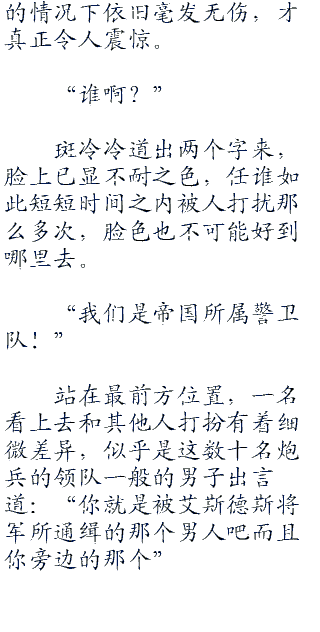 的情况下依旧毫发无伤，才
真正令人震惊。
“谁啊？”
斑冷冷道出两个字来，
脸上已显不耐之色，任谁如
此短短时间之内被人打扰那
么多次，脸色也不可能好到
哪里去。
“我们是帝国所属警卫
队！”
站在最前方位置，一名
看上去和其他人打扮有着细
微差异，似乎是这数十名炮
兵的领队一般的男子出言
道：“你就是被艾斯德斯将
军所通缉的那个男人吧而且
你旁边的那个”